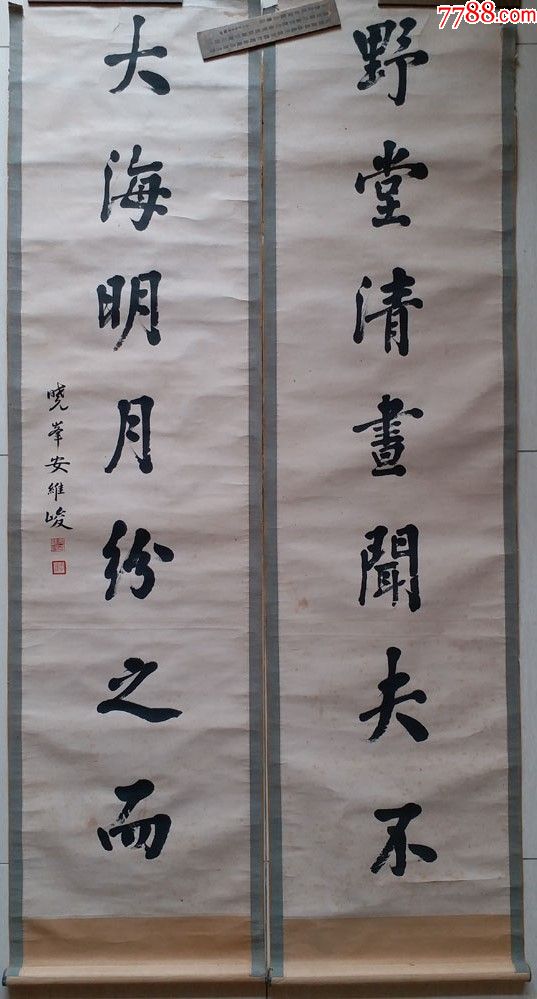 7788.com
野堂清晝聞夫不
大海明月紛之而
曉峯安維峻